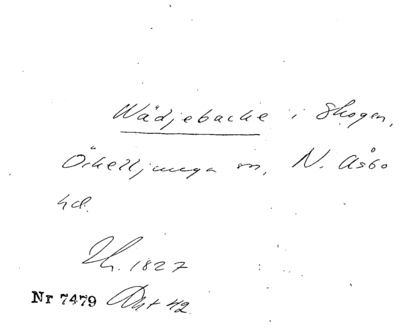 Wädjebacke i Skogen,
Örkelljunga sn, N. Åsbo
hd.
1827
Nr 7479 Akt 42